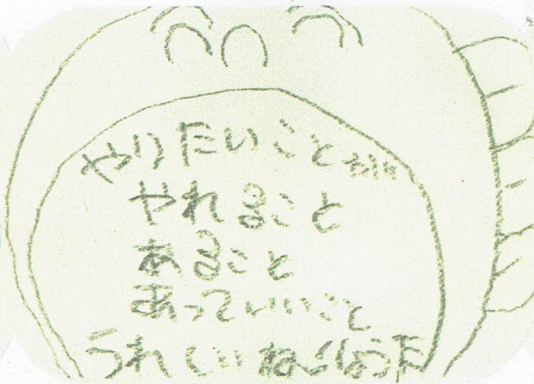 やりたいことが
やれること
あること
あっていいこと
うれしいね